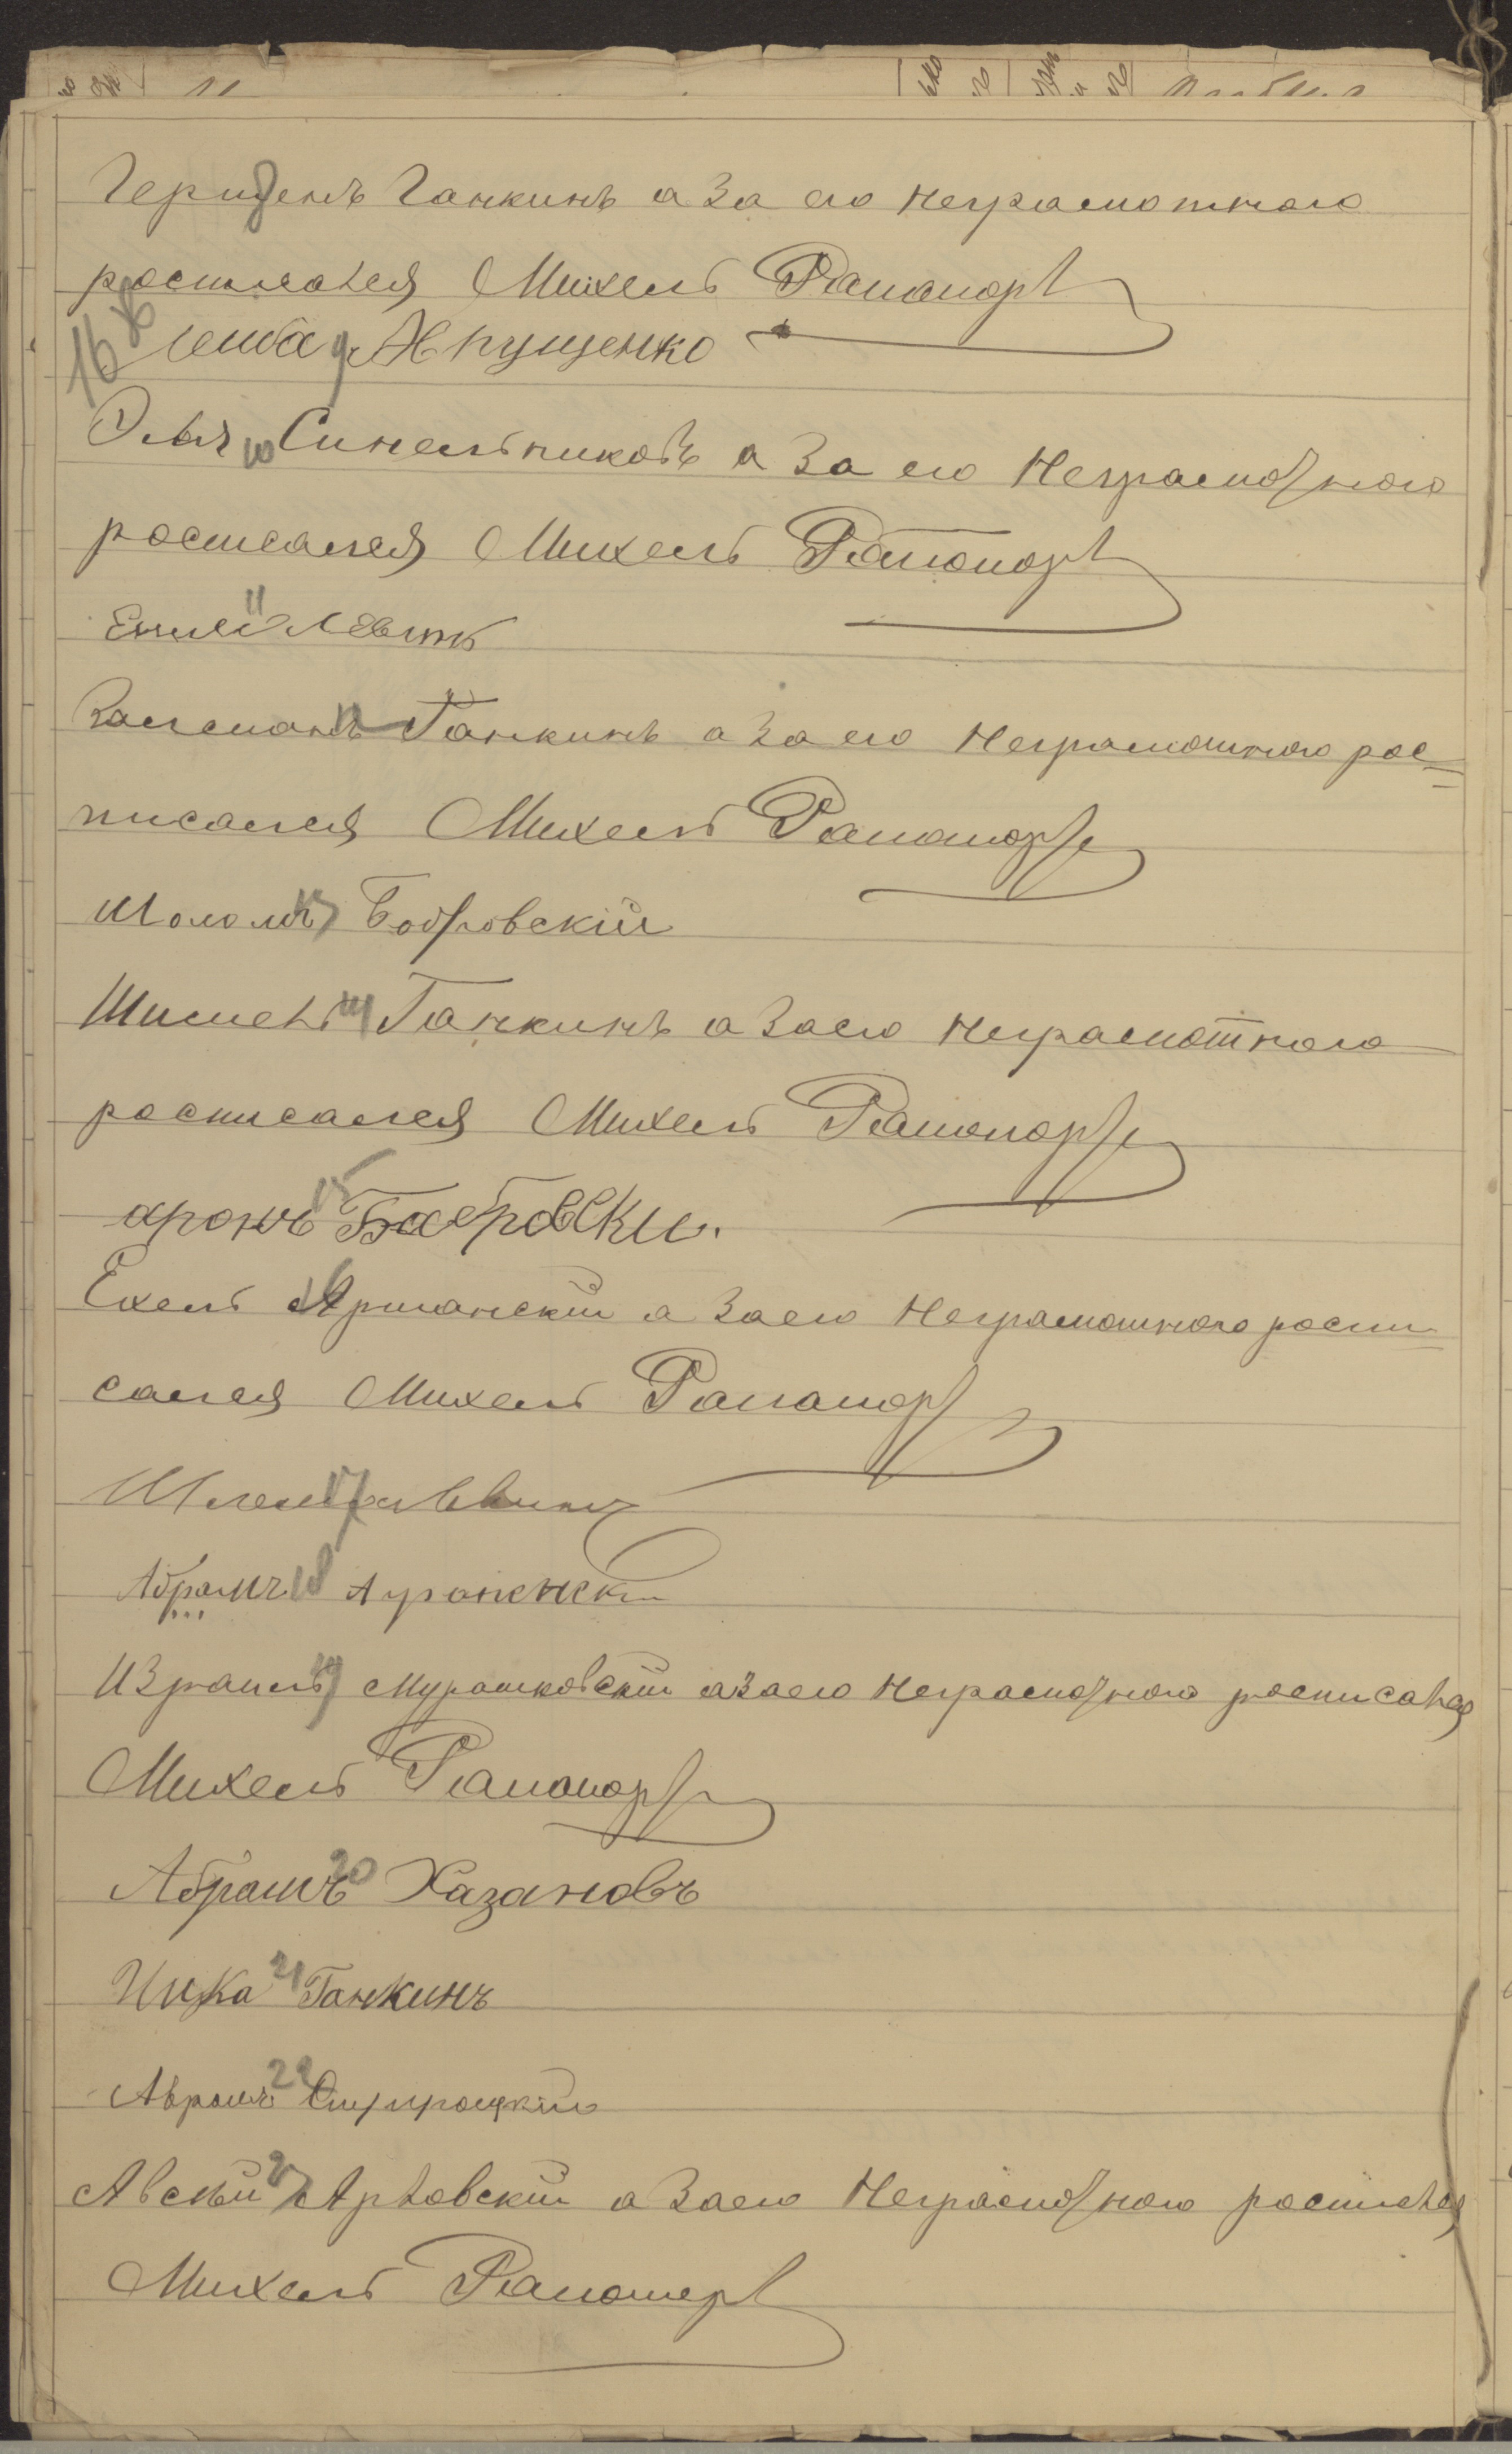 Ганкинъ а за его неграмотнаго
росписался Михель Рапапорт
16
Хрущенко
10 Синельниковъ а за его неграмотнаго
росписался Михель Рапопорт
11 Левитъ
Залманъ 12 Ганкинъ а за его неграмотнаго рос=
писался Михель Рапапорт
Шоломъ 13 Бобровскій
14 Ганкинъ а за его неграмотного
росписался Михель Рапопорт
аронъ 15 Бобровски.
Ехель 16 а за его неграмотнаго роспи
сался Михель Рапапорт
17
Абрамъ 18
Израиль 19 Мурашковскій а за его неграмотнаго росписался
Михель Рапапорт
Абрамъ 20 Хазановъ
Ицка 21 Ганкинъ
Аврамъ 22
Авсѣй 23 а за его неграмотного росписался
Михель Рапопорт